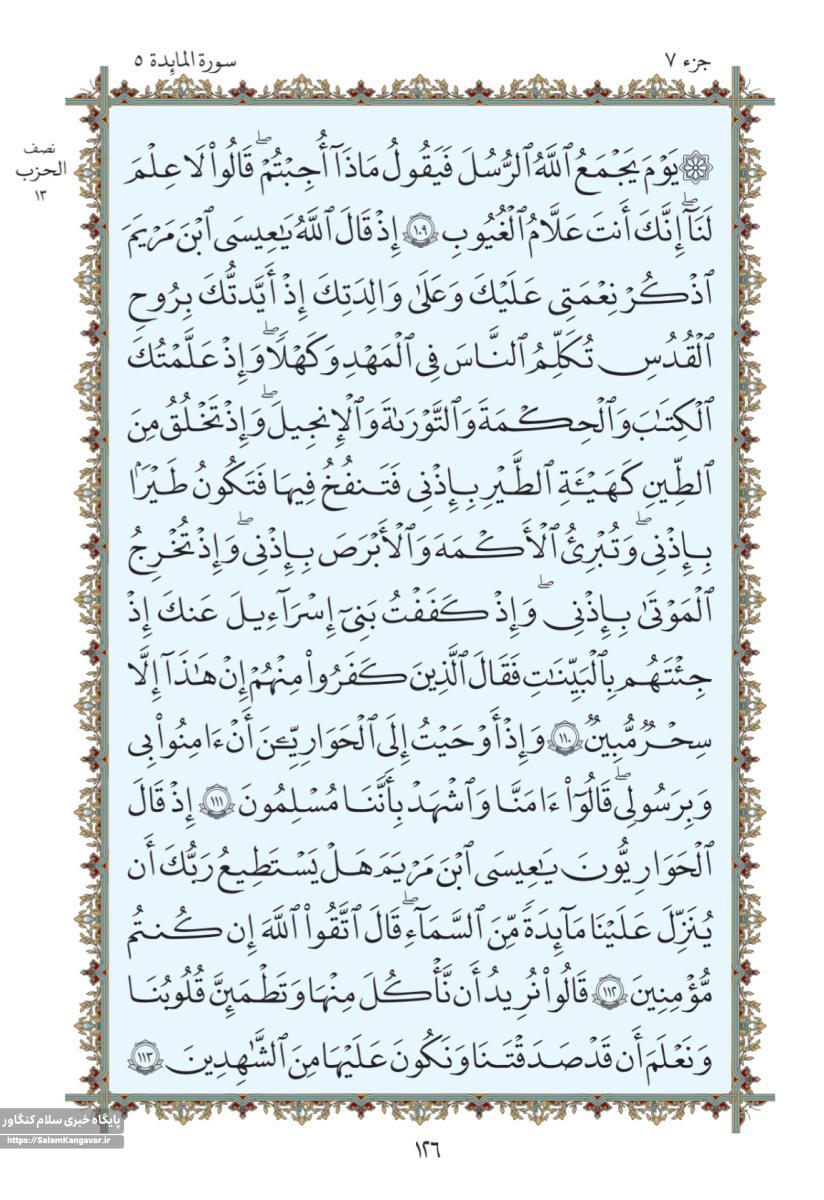 جزء ٧
سورة المایدة ٥
نصف
الحزب
١٣
۞ يَوْمَ يَجْمَعُ ٱللَّهُ ٱلرُّسُلَ فَيَقُولُ مَاذَآ أُجِبْتُمْ ۖ قَالُوا۟ لَا عِلْمَ
لَنَآ ۖ إِنَّكَ أَنتَ عَلَّٰمُ ٱلْغُيُوبِ ١٠٩ إِذْ قَالَ ٱللَّهُ يَٰعِيسَى ٱبْنَ مَرْيَمَ
ٱذْكُرْ نِعْمَتِى عَلَيْكَ وَعَلَىٰ وَٰلِدَتِكَ إِذْ أَيَّدتُّكَ بِرُوحِ
ٱلْقُدُسِ تُكَلِّمُ ٱلنَّاسَ فِى ٱلْمَهْدِ وَكَهْلًا ۖ وَإِذْ عَلَّمْتُكَ
ٱلْكِتَٰبَ وَٱلْحِكْمَةَ وَٱلتَّوْرَىٰةَ وَٱلْإِنجِيلَ ۖ وَإِذْ تَخْلُقُ مِنَ
ٱلطِّينِ كَهَيْـَٔةِ ٱلطَّيْرِ بِإِذْنِى فَتَنفُخُ فِيهَا فَتَكُونُ طَيْرًۢا
بِإِذْنِى ۖ وَتُبْرِئُ ٱلْأَكْمَهَ وَٱلْأَبْرَصَ بِإِذْنِى ۖ وَإِذْ تُخْرِجُ
ٱلْمَوْتَىٰ بِإِذْنِى ۖ وَإِذْ كَفَفْتُ بَنِىٓ إِسْرَٰٓءِيلَ عَنكَ إِذْ
جِئْتَهُم بِٱلْبَيِّنَٰتِ فَقَالَ ٱلَّذِينَ كَفَرُوا۟ مِنْهُمْ إِنْ هَٰذَآ إِلَّا
سِحْرٌ مُّبِينٌ ١١٠ وَإِذْ أَوْحَيْتُ إِلَى ٱلْحَوَارِيِّـۧنَ أَنْ ءَامِنُوا۟ بِى
وَبِرَسُولِى ۖ قَالُوٓا۟ ءَامَنَّا وَٱشْهَدْ بِأَنَّنَا مُسْلِمُونَ ١١١ إِذْ قَالَ
ٱلْحَوَارِيُّونَ يَٰعِيسَى ٱبْنَ مَرْيَمَ هَلْ يَسْتَطِيعُ رَبُّكَ أَن
يُنَزِّلَ عَلَيْنَا مَآئِدَةً مِّنَ ٱلسَّمَآءِ ۖ قَالَ ٱتَّقُوا۟ ٱللَّهَ إِن كُنتُم
مُّؤْمِنِينَ ١١٢ قَالُوا۟ نُرِيدُ أَن نَّأْكُلَ مِنْهَا وَتَطْمَئِنَّ قُلُوبُنَا
وَنَعْلَمَ أَن قَدْ صَدَقْتَنَا وَنَكُونَ عَلَيْهَا مِنَ ٱلشَّٰهِدِينَ ١١٣
پایگاه خبری سلام کنگاور
https://SalamKangavar.ir
١٢٦